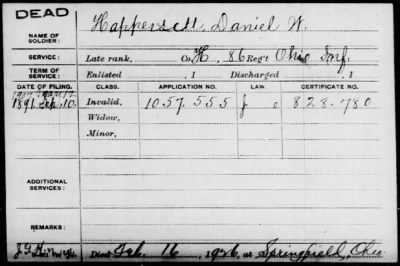 DEAD
NAME OF SOLDIER: Happersett, Daniel W.
SERVICE: Late rank, Co. K, 86 Reg't Ohio Inf.
TERM OF SERVICE: Enlisted , 1 Discharged , 1
DATE OF FILING. CLASS. APPLICATION NO. LAW. CERTIFICATE NO.
1891 Sep. 10. Invalid, 1057.555 828.780
Widow,
Minor,
ADDITIONAL SERVICES:
REMARKS:
Died Feb. 16, 1926, at Springfield, Ohio